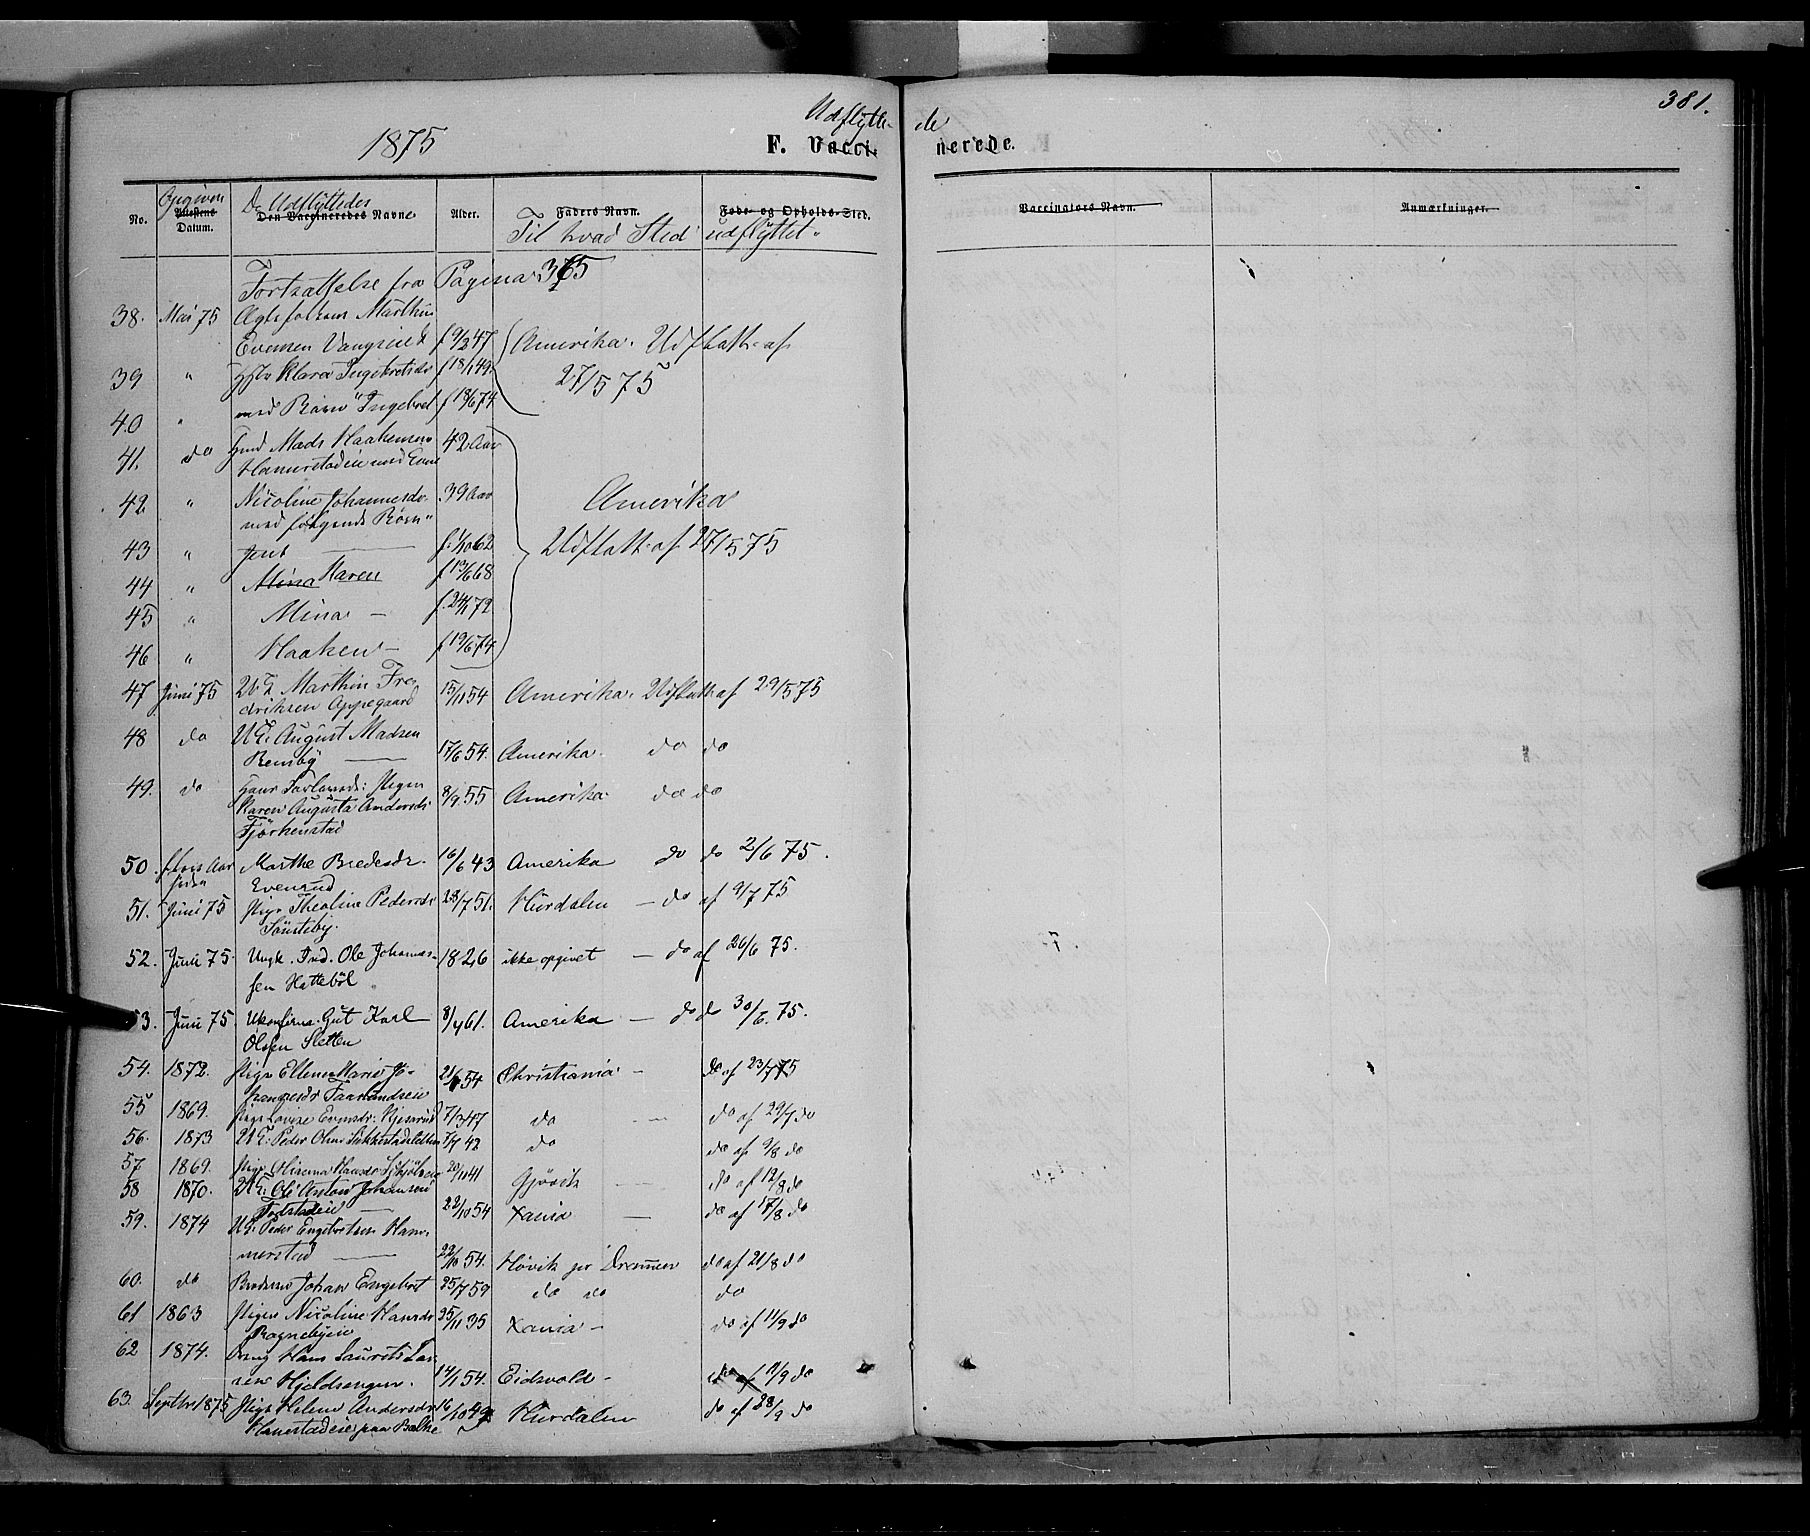 381.
1875
Udflytte-de
F. Vaccinerede.
No. Opgiven Attestens Datum. De Udflyttedes Den Vaccineredes Navne Alder. Faders Navn. Føde- og Opholds-Sted. Vaccinators Navn. Anmærkninger.
Til hvad Sted udflyttet.
Fortsættelse fra Pagina 375
38. Mai 75 Ægtefolkene Marthin
Evensen Vangseie f 9/2 47 Amerika. Udflatt. af
39 " Hstr Klara Ingebretsdr f 18/1 49. 27/5 75
40 " med Børn" Ingebret f 18/6 74
41. do Hmd Mads Haakensen 42 Aar
Hannestadeie med Kone
42 " Nicoline Johannesdr. 39 Aar Amerika
med følgende Børn"
43 " Jens f. 1/10 62 Udflatt. af 27/5 75
44 " Mina Karen f 13/6 68
45 " Mina — f. 24/1 72
46 " Haaken — f 19/6 74
47 Juni 75 U.K. Marthin Fre- 15/11 54 Amerika. Udflatt. af 29/5 75
driksen Oppegaard
48 do U K. August Madsen
Remby 17/6 54. Amerika. do do
49. do Pigen
Karen Augusta Andersdr 8/9 55 Amerika do do
Fjørkenstad
50. Aar Marthe Bredesdr. 16/6 43 Amerika do do 2/6 75.
siden Evensud
51. Juni 75 Pige Theoline Pedersdr 28/7 51. Hurdalen — do af 9/7 75
Sønsteby.
52. Juni 75. Ungk. Ind. Ole Johannes- 1826 ikke opgivet — do af 26/6 75.
sen Hattebøl
53. Juni 75 Ukonfirm. Gut Karl 8/4 61. Amerika — do do 30/6. 75.
Olsen Sletten
54. 1872. Pige Ellen Marie Jo- 21/1 54 Christiania — do af 23/7 75
hannesdr Faarlandseie
55 1869. Pige Lovise Evensdr. 7/3 47 do — do af 29/7 do
56. 1873 U K: Peder Olsen 7/7 42 do do af 9/8 do
57 1869. Pige Hansdr 20/11 41 Gjøvik — do af 12/8 do
58 1870. U K: Ole Anton Johansen
Fodstadeie 22/10 54 Xania — do af 17/8 do
59. 1874 U K: Peder Engebretsen Ham-
merstad 22/10 54. Høvik pr Drammen do af 21/8 do
60. do Broderen Johan Engebret 25/7 59 do do do
61 1863 Pigen Nicoline Hansdr 25/11 35 Xania — do af 11/9 do
Rognebyeie
62 1874. Dreng Hans Laurits Lar-
sen Hjeldsengen. 14/1 54. Eidsvold — do af 11/9 do
63. Septbr 1875 Pige Helene Andersdr 16/10 49 Hurdalen do af 28/9 do
Hannestadeie paa Balke